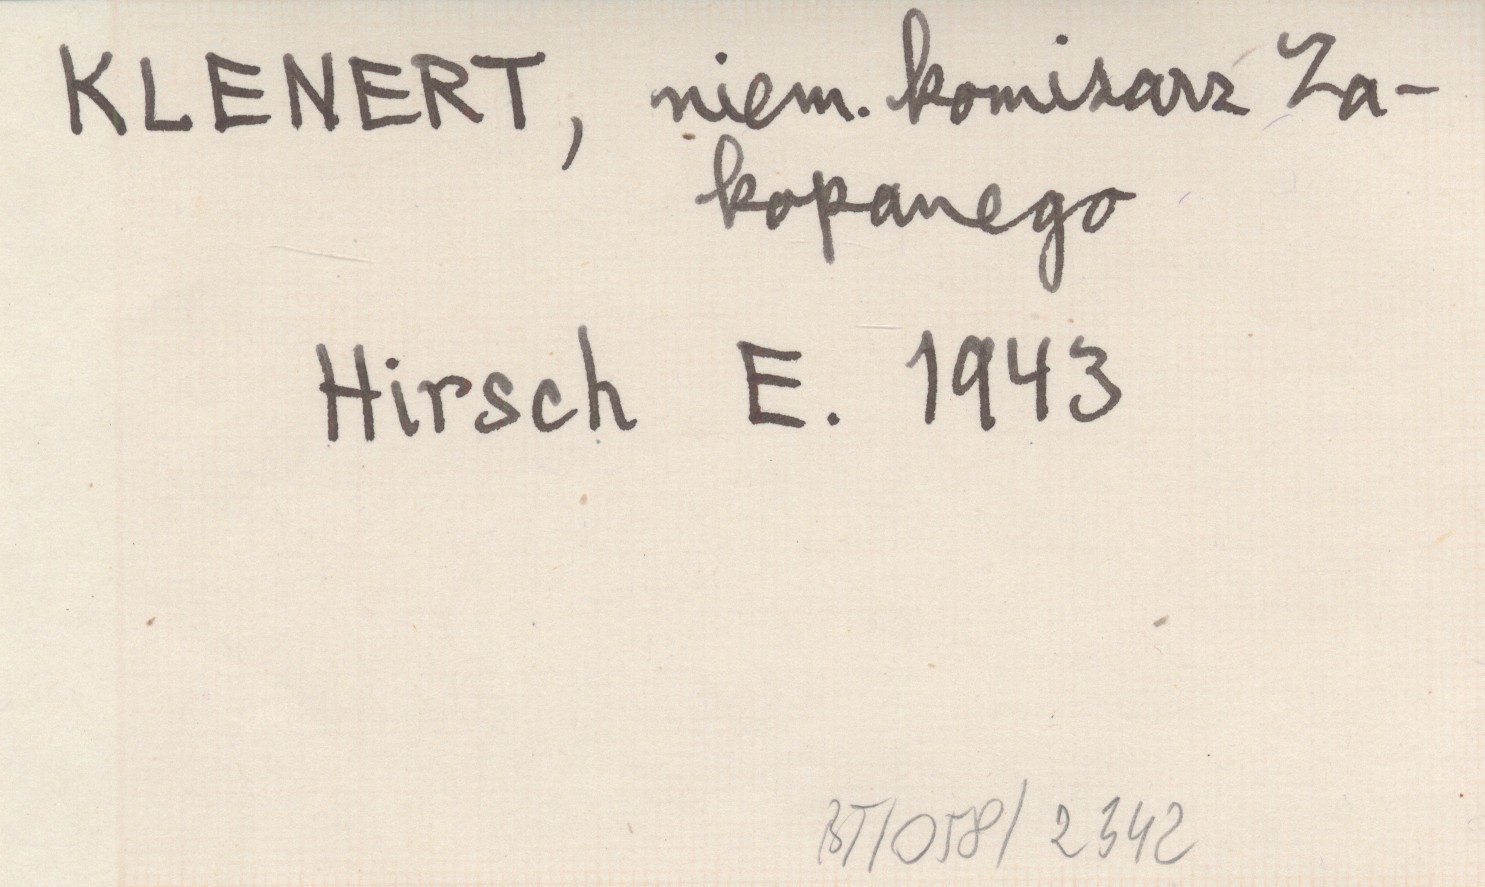 KLENERT, niem. komisarz Za-
kopanego
Hirsch E. 1943
BT/058/2342